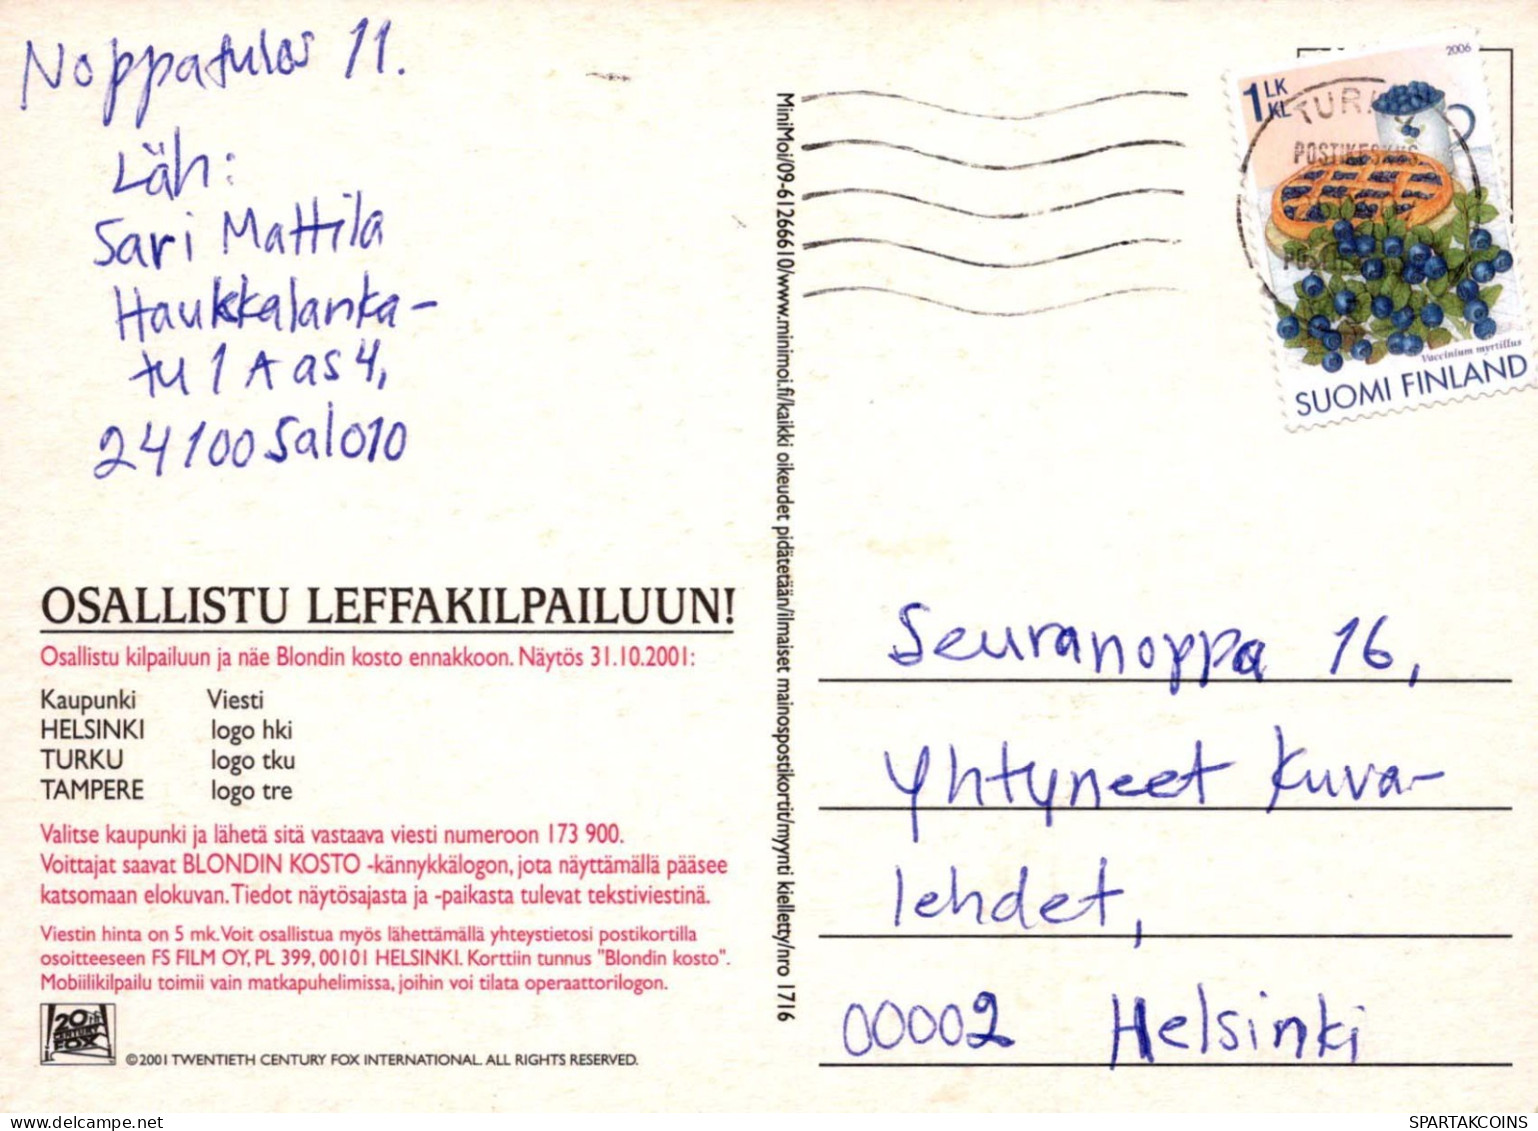 Noppatulos 11.
Läh:
Sari Mattila
Haukkalanka-
tu 1 A as 4,
24100 Salo10
OSALLISTU LEFFAKILPAILUUN!
Osallistu kilpailuun ja näe Blondin kosto ennakkoon. Näytös 31.10.2001:
Kaupunki Viesti
HELSINKI logo hki
TURKU logo tku
TAMPERE logo tre
Valitse kaupunki ja lähetä sitä vastaava viesti numeroon 173 900.
Voittajat saavat BLONDIN KOSTO -kännykkälogon, jota näyttämällä pääsee
katsomaan elokuvan. Tiedot näytösajasta ja -paikasta tulevat tekstiviestinä.
Viestin hinta on 5 mk. Voit osallistua myös lähettämällä yhteystietosi postikortilla
osoitteeseen FS FILM OY, PL 399, 00101 HELSINKI. Korttiin tunnus "Blondin kosto".
Mobiilikilpailu toimii vain matkapuhelimissa, joihin voi tilata operaattorilogon.
20th
CENTURY
FOX
©2001 TWENTIETH CENTURY FOX INTERNATIONAL. ALL RIGHTS RESERVED.
MiniMoi/09-61266610/www.minimoi.fi/kaikki oikeudet pidätetään/ilmaiset mainospostikortit/myynti kielletty/nro 1716
2006
1 LK
KL
TURKU
POSTIKESKUS
Vaccinium myrtillus
SUOMI FINLAND
Seuranoppa 16,
Yhtyneet Kuva-
lehdet,
00002 Helsinki
SPARTAKCOINS